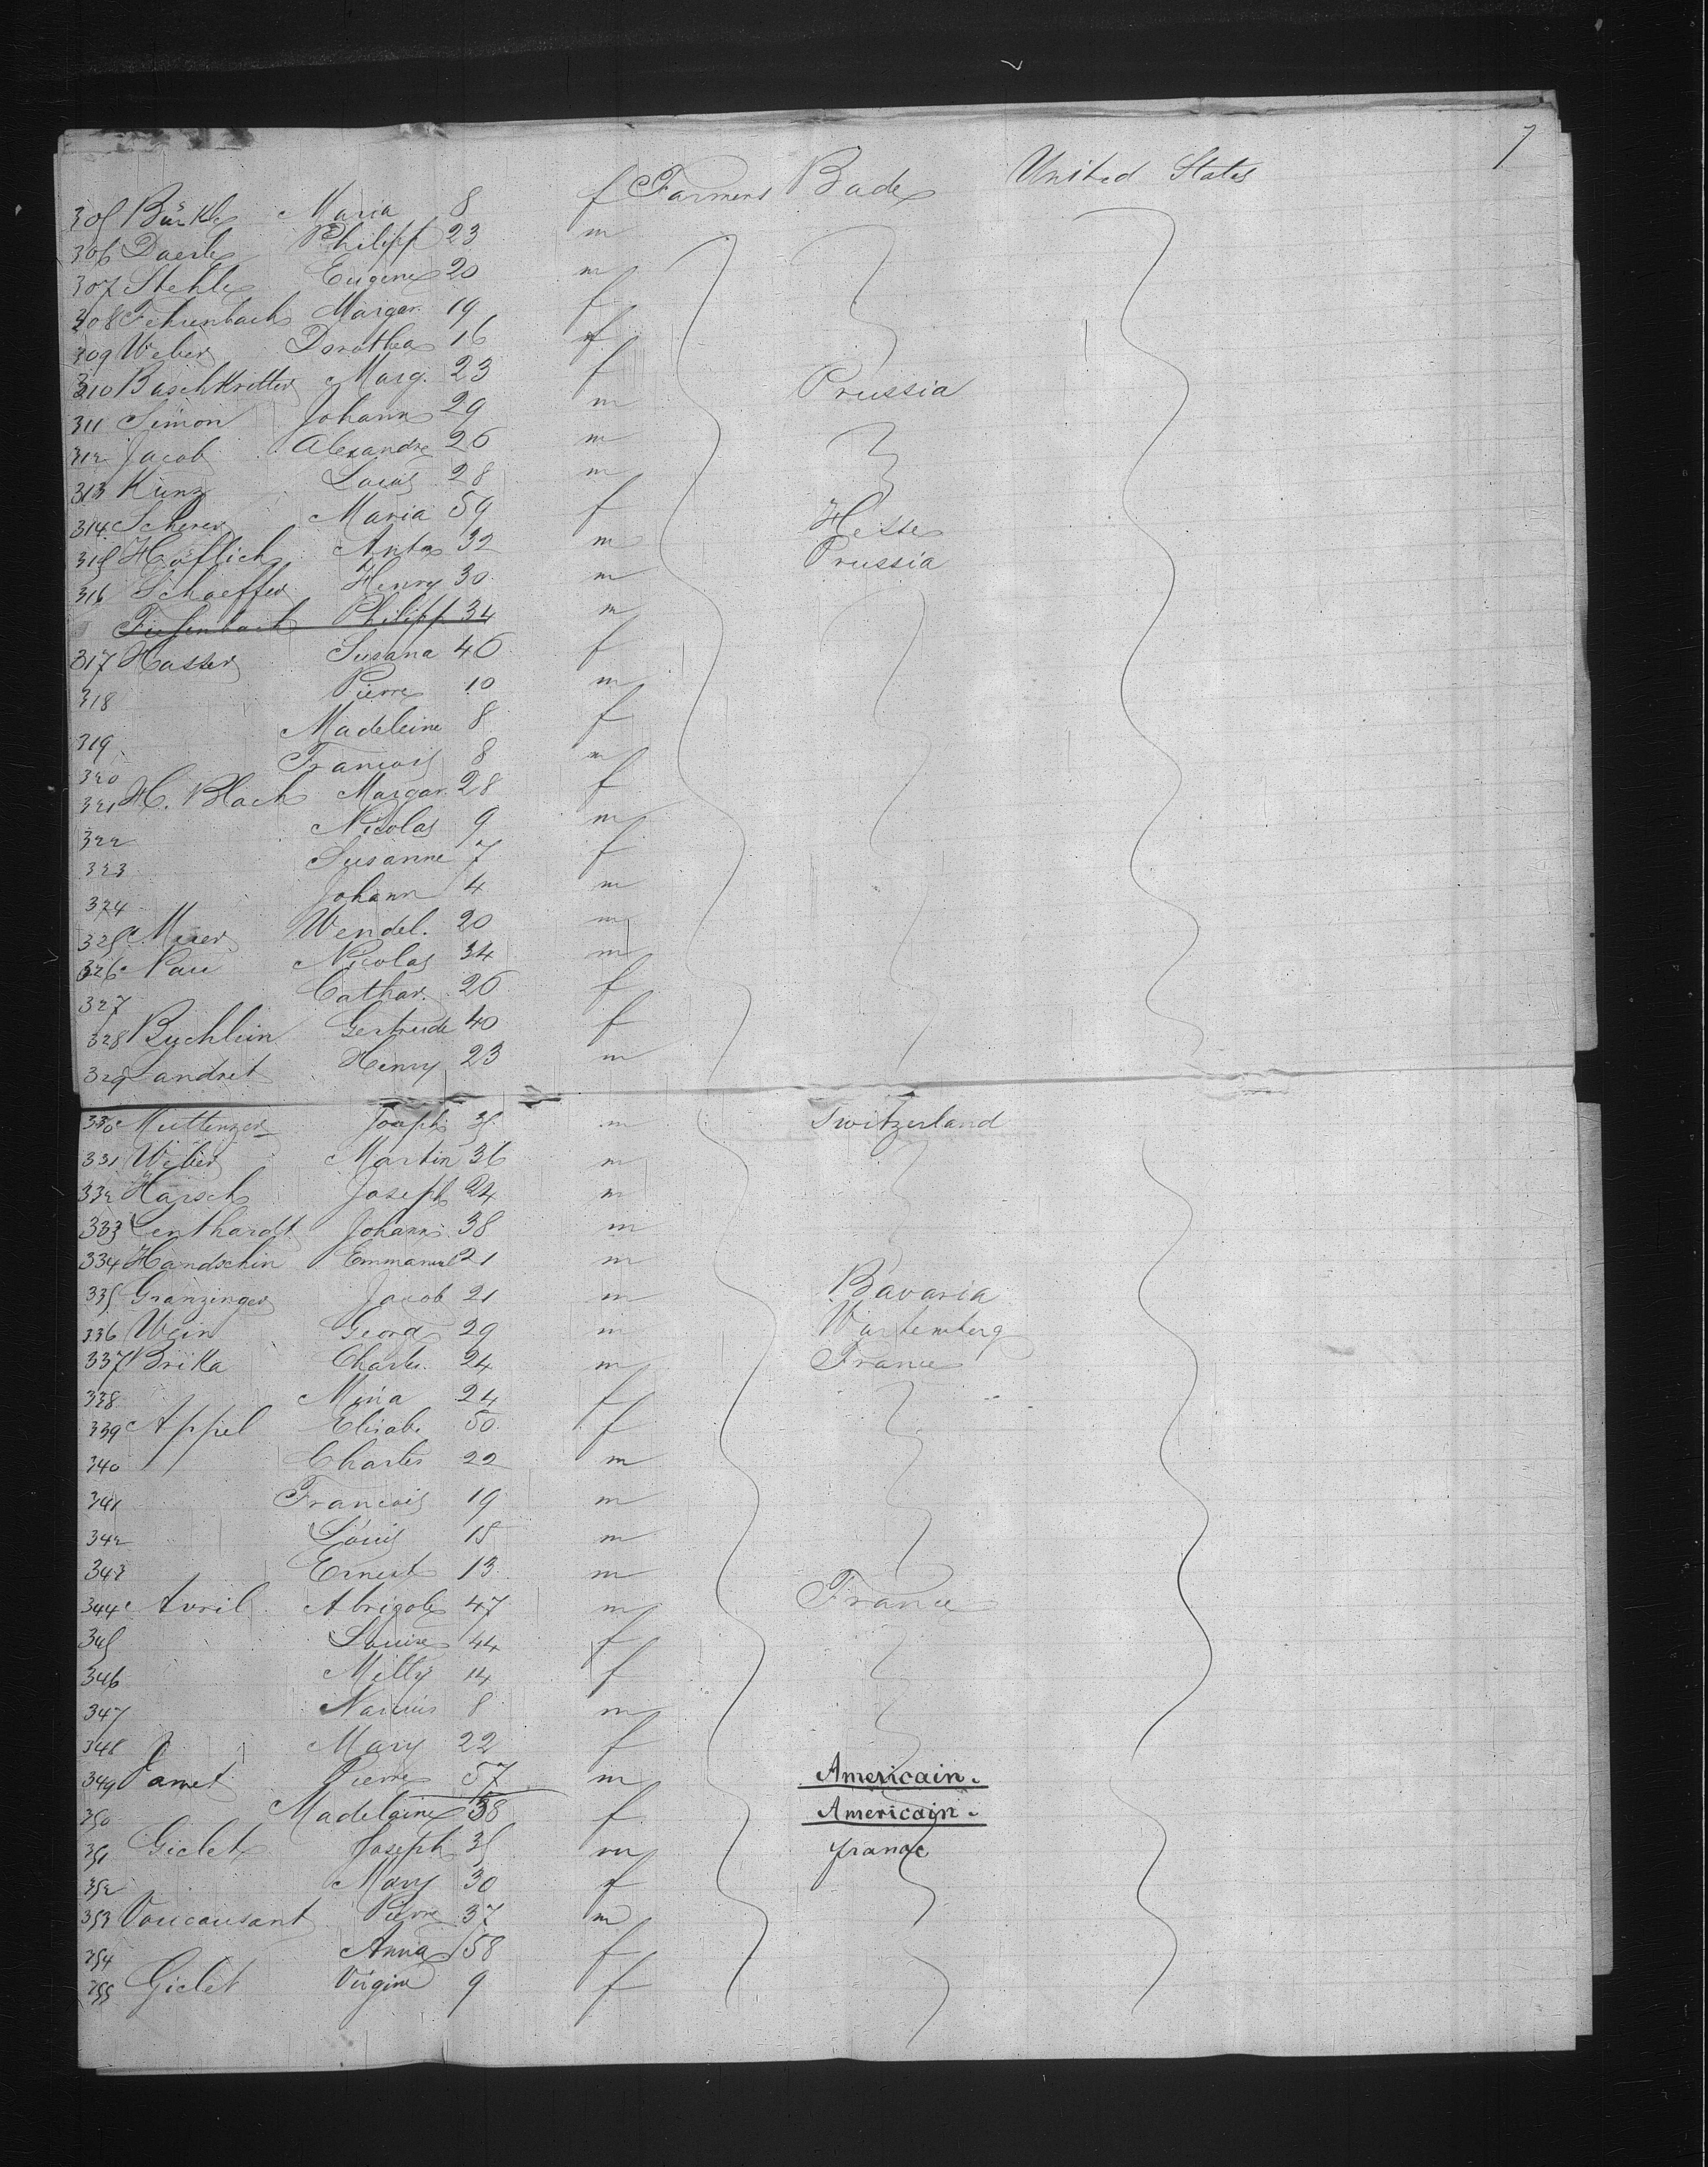 7
305 Bürkle Maria 8 f Farmers Bade United States
306 Daerle Philipp 23 m
307 Stehle Eugene 20 m
308 Fehrenbach Margar. 19 f
309 Weber Dorothea 16 f
310 Baschkritter Marg. 23 f Prussia
311 Simon Johann 29 m
312 Jacob Alexandre 26 m
313 Kunz Louis 28 m
314 Scherer Maria 59 f Hesse
315 Höflich Anto 32 m Prussia
316 Schaeffer Henry 30 m
Philipp 34 m
317 Hasser Susana 40 f
318 Pierre 10 m
319 Madeleine 8 f
320 Francois 8 m
321 H. Black Margar. 28 f
322 Nicolas 9 m
323 Susanne 7 f
324 Johann 4 m
325 Meier Wendel. 20 m
326 Pau Nicolas 34 m
327 Cathar. 26 f
328 Buchlein Gertrude 40 f
329 Landret Henry 23 m
330 Muttenzer Joseph 35 m Switzerland
331 Weber Martin 36 m
332 Harsch Joseph 24 m
333 Lenthardt Johann 38 m
334 Handschin Emmanuel 21 m
335 Granzinger Jacob 21 m Bavaria
336 Wein Georg 29 m Wurtemberg
337 Brika Charles 24 m France
338 Mina 24 f
339 Appel Elisabe 50 f
340 Charles 22 m
341 Francois 19 m
342 Louis 15 m
343 Ernest 13 m
344 Avril Abrigole 47 m France
345 Louise 44 f
346 Milly 14 f
347 Narcius 8 m
348 Mary 22 f
349 Jamet Pierre 57 m Americain.
350 Madelaine 38 f Americain.
351 Giclet Joseph 35 m france
352 Mary 30 f
353 Voucausant Pierre 37 m
354 Anna 58 f
355 Giclet Virgine 9 f